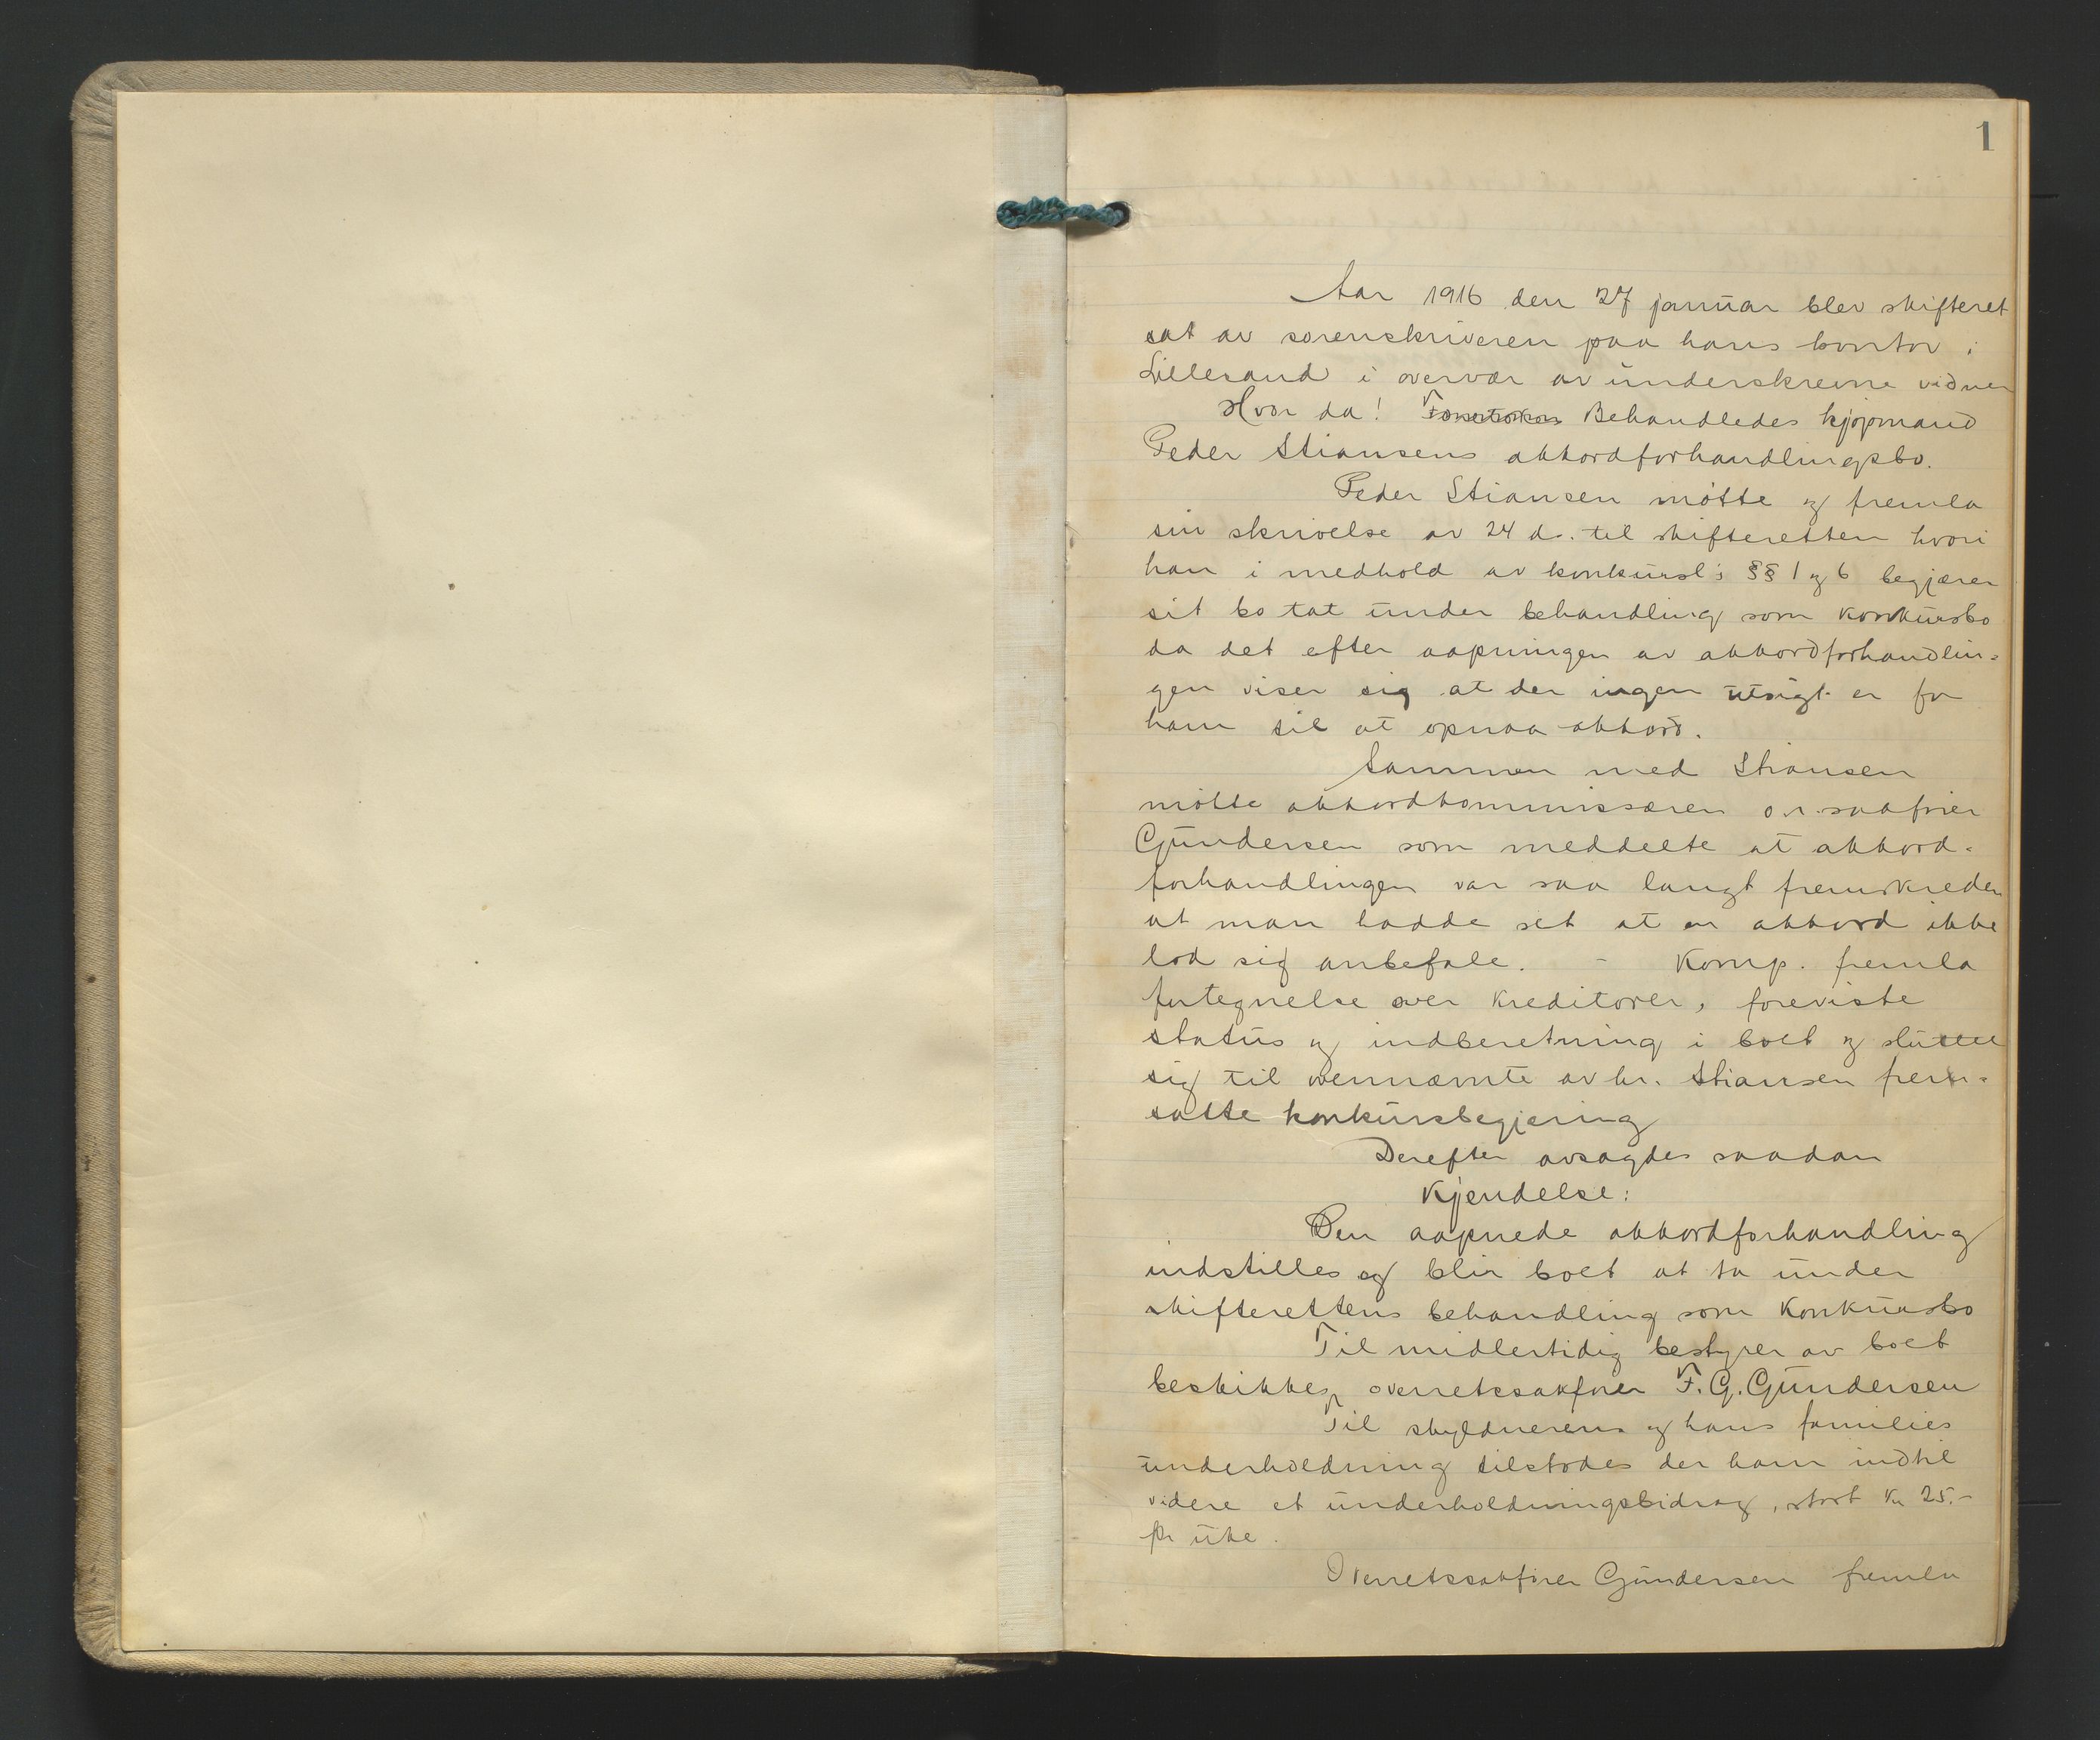 1
Aar 1916 den 27 januar blev skifteret
sat av sorenskriveren paa hans kontor i
Lillesand i overvær av underskrevne vidner
Hvor da! Behandledes kjøpmand
Peder Stiansens akkordforhandlingsbo.
Peder Stiansen møtte og fremla
sin skrivelse av 24 ds. til skifteretten hvori
han i medhold av konkursl's §§ 1 og 6 begjærer
sit bo tat under behandling som konkursbo
da det efter aapningen av akkordforhandlin=
gen viser sig at der ingen utsigt er for
ham til at opnaa akkord.
Sammen med Stiansen
møtte akkordkommissæren o.r.sakfører
Gundersen som meddelte at akkord-
forhandlingen var saa langt fremskreden
at man hadde set at en akkord ikke
lod sig anbefale. - Komp. fremla
fortegnelse over kreditorer, foreviste
status og indberetning i boet og sluttet
sig til ovennævnte av hr. Stiansen frem=
satte konkursbegjæring
Derefter avsagdes saadan
Kjendelse:
Den aapnede akkordforhandling
indstilles og blir boet at ta under
skifterettens behandling som konkursbo
Til midlertidig bestyrer av boet
beskikkes overretssakfører F. G. Gundersen
Til skyldnerens og hans families
underholdning tilstodes der ham indtil
videre et underholdningsbidrag, stort Kr 25.-
pr uke.
Overretssakfører Gundersen fremla